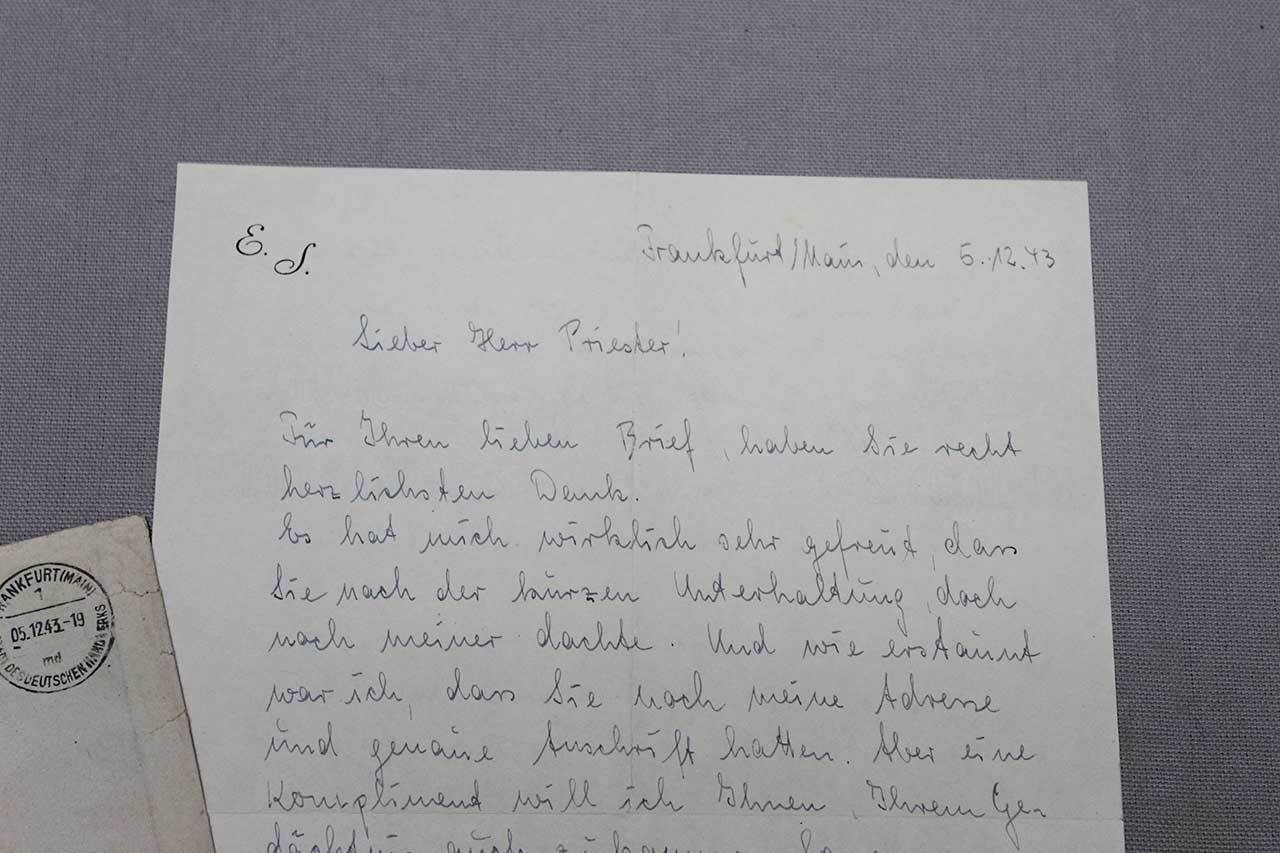 E. S.
Frankfurt/Main, den 5.12.43
Lieber Herr Priester!
Für Ihren lieben Brief, haben Sie recht
herzlichsten Dank.
Es hat mich wirklich sehr gefreut, dass
Sie nach der kurzen Unterhaltung, doch
noch meiner dachte. Und wie erstaunt
war ich, dass Sie noch meine Adresse
und genaue Anschrift hatten. Aber eine
Kompliment will ich Ihnen, Ihrem Ge-
dächtnis auch zu kommen
FRANKFURT(MAIN)
1
05.12.43.-19
md
DES DEUTSCHEN HANDWERKS